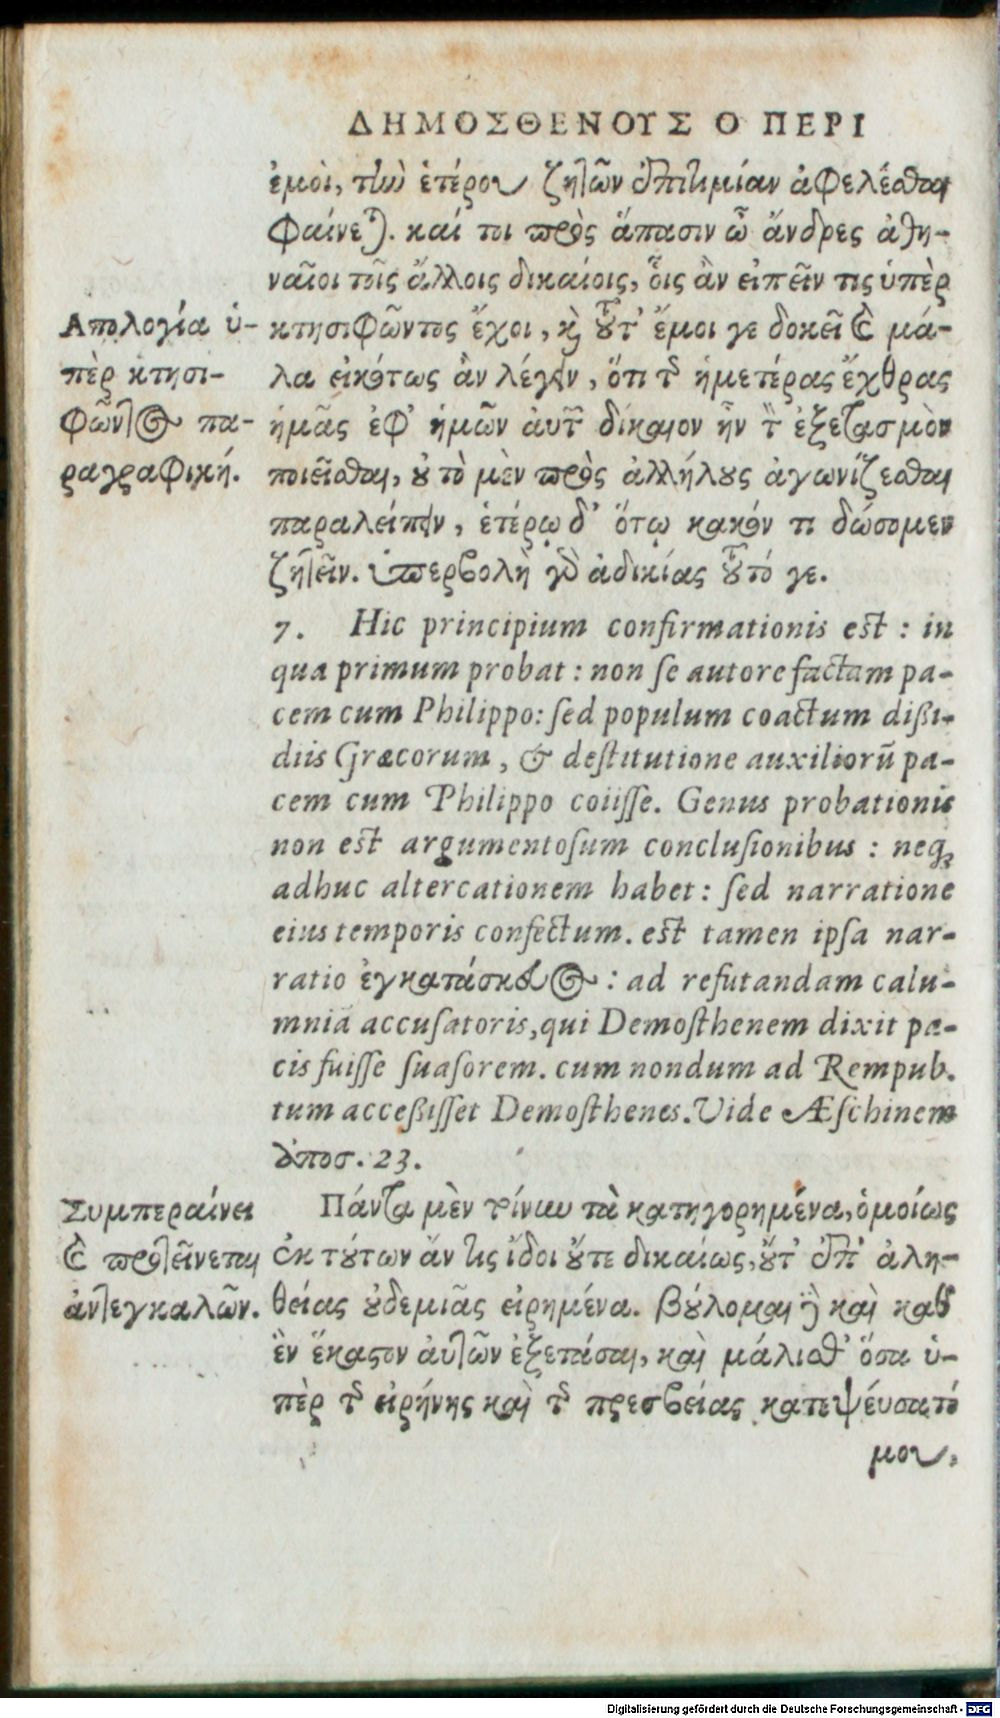 ΔΗΜΟΣΘΕΝΟΥΣ Ο ΠΕΡΙ
ἐμοὶ, τὴν ἑτέρου ζητῶν ἐπιτιμίαν ἀφελέσθαι
φαίνεται. καί τοι πρὸς ἅπασιν ὦ ἄνδρες ἀθη-
ναῖοι τοῖς ἄλλοις δικαίοις, οἷς ἂν εἰπεῖν τις ὑπὲρ
κτησιφῶντος ἔχοι, καὶ τοῦτ' ἔμοι γε δοκεῖ καὶ μά-
λα εἰκότως ἂν λέγειν, ὅτι τῆς ἡμετέρας ἔχθρας
ἡμᾶς ἐφ' ἡμῶν αὐτῶν δίκαιον ἦν τὸν ἐξετασμὸν
ποιεῖσθαι, οὐ τὸ μὲν πρὸς ἀλλήλους ἀγωνίζεσθαι
παραλείπειν, ἑτέρῳ δ' ὅτῳ κακόν τι δώσομεν
ζητεῖν. ὑπερβολὴ γὰρ ἀδικίας τοῦτό γε.
Απολογία ὑ-
πὲρ κτησι-
φῶντος πα-
ραγραφική.
7. Hic principium confirmationis est : in
qua primum probat : non se autore factam pa-
cem cum Philippo: sed populum coactum dißi-
diis Græcorum, & destitutione auxiliorũ pa-
cem cum Philippo coiisse. Genus probationis
non est argumentosum conclusionibus : neq;
adhuc altercationem habet : sed narratione
eius temporis confectum. est tamen ipsa nar-
ratio ἐγκατάσκευος : ad refutandam calu-
mniã accusatoris, qui Demosthenem dixit pa-
cis fuisse suasorem. cum nondum ad Rempub.
tum acceßisset Demosthenes. Vide Æschinem
ἀποσ. 23.
Πάντα μὲν τοίνυν τὰ κατηγορημένα, ὁμοίως
ἐκ τούτων ἄν τις ἴδοι οὔτε δικαίως, οὔτ' ἐπ' ἀλη-
θείας οὐδεμιᾶς εἰρημένα. βούλομαι δὲ καὶ καθ'
ἓν ἕκαστον αὐτῶν ἐξετάσαι, καὶ μάλισθ' ὅσα ὑ-
πὲρ τῆς εἰρήνης καὶ τῆς πρεσβείας κατεψεύσατό
μου,
Συμπεραίνει
καὶ προτείνεται
ἀντεγκαλῶν.
Digitalisierung gefördert durch die Deutsche Forschungsgemeinschaft - DFG